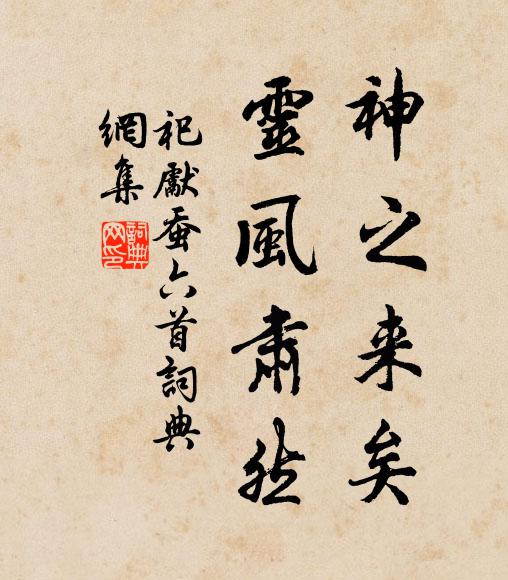 神之来矣
靈風肅然
祀獻蚕六首詞典
網集
詞典
网印